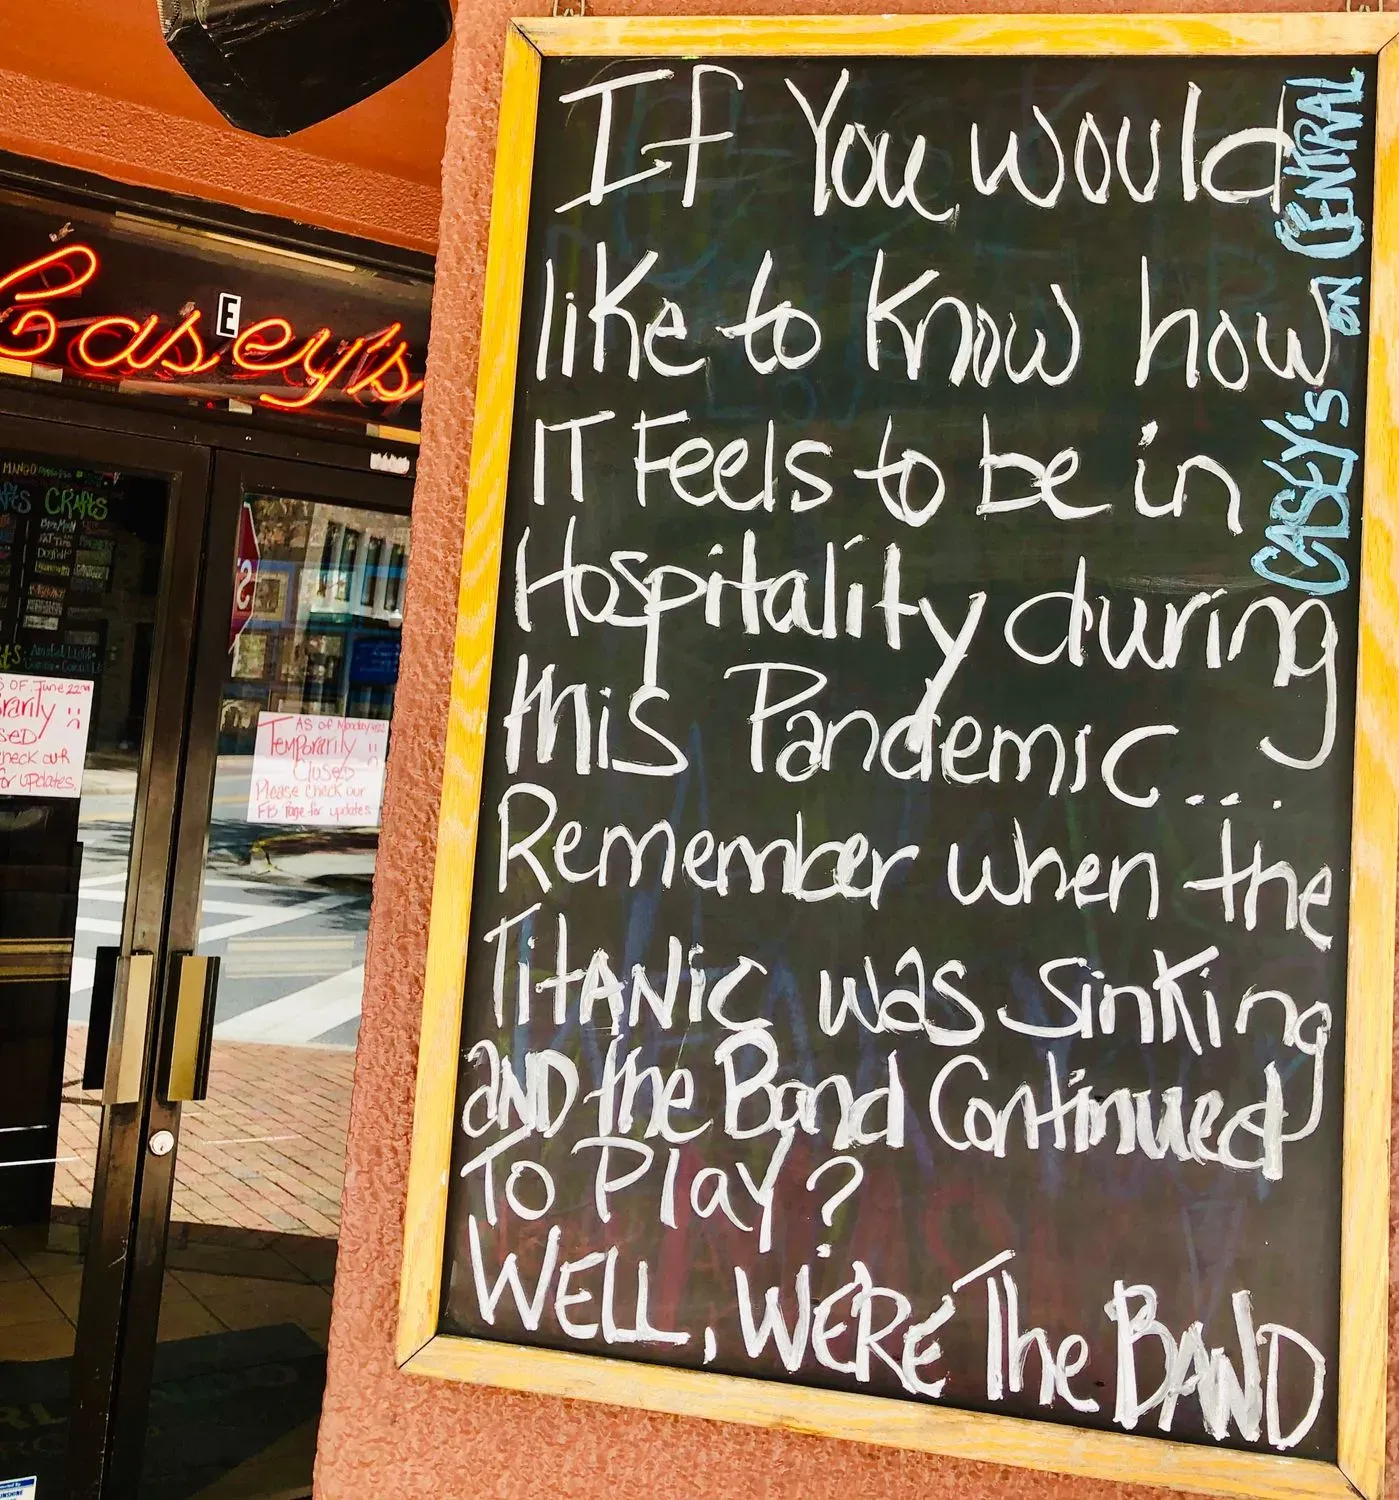 If You would
like to know how
IT Feels to be in
Hospitality during
this Pandemic...
Remember when the
TitANic was sinking
aND the Band Continued
To Play?
WELL, WE'RE The BAND
CASEY's ON CENTRAL
Casey's
E
MANGO
CRAFTS
As of Monday
Temporarily
Closed
Please check our
FB Page for updates
OF June 22nd
rarily
sed
check our
for updates.